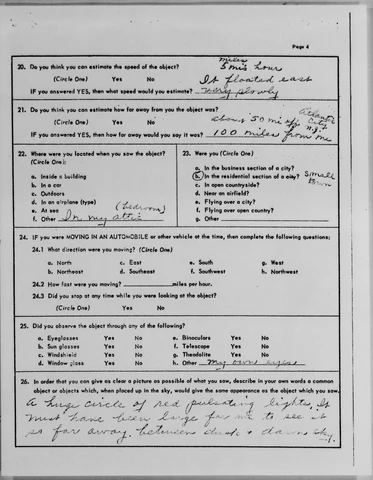 Page 4
20. Do you think you can estimate the speed of the object?
miles
5 mis hour
(Circle One) Yes No
It floated east
IF you answered YES, then what speed would you estimate? very slowly
21. Do you think you can estimate how far away from you the object was?
Atlantic
City
N.J.
(Circle One) Yes No about 50 mi off
IF you answered YES, then how far away would you say it was? 100 miles from me
22. Where were you located when you saw the object?
(Circle One):
a. Inside a building
b. In a car
c. Outdoors
d. In an airplane (type)
e. At sea (bedroom)
f. Other In my attic
23. Were you (Circle One)
a. In the business section of a city?
b. In the residential section of a city? Small town
c. In open countryside?
d. Near an airfield?
e. Flying over a city?
f. Flying over open country?
g. Other
24. IF you were MOVING IN AN AUTOMOBILE or other vehicle at the time, then complete the following questions:
24.1 What direction were you moving? (Circle One)
a. North c. East e. South g. West
b. Northeast d. Southeast f. Southwest h. Northwest
24.2 How fast were you moving? miles per hour.
24.3 Did you stop at any time while you were looking at the object?
(Circle One) Yes No
25. Did you observe the object through any of the following?
a. Eyeglasses Yes No e. Binoculars Yes No
b. Sun glasses Yes No f. Telescope Yes No
c. Windshield Yes No g. Theodolite Yes No
d. Window glass Yes No h. Other my own eyes
26. In order that you can give as clear a picture as possible of what you saw, describe in your own words a common
object or objects which, when placed up in the sky, would give the same appearance as the object which you saw.
A huge circle of red pulsating lights. It
must have been large for me to see it
so far away. between dusk & dawn sky.